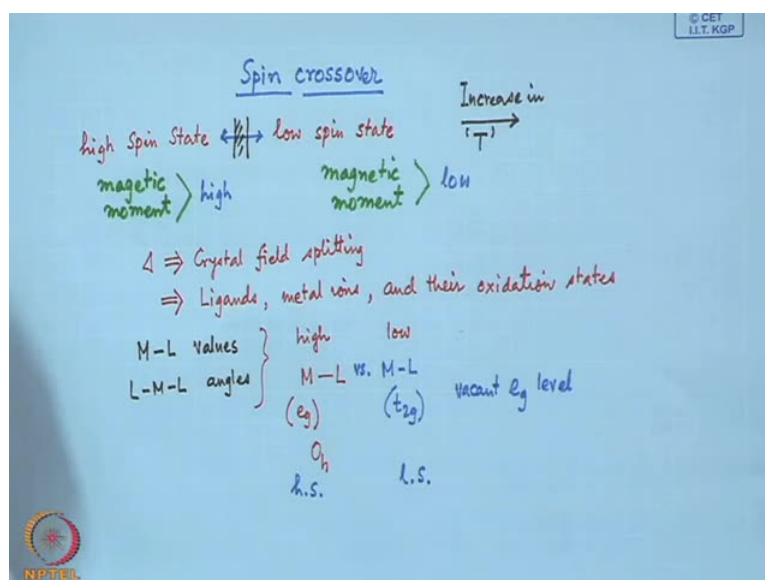 © CET
I.I.T. KGP
Spin crossover
Increase in
'T'
high Spin State ↔ low spin state
magetic
moment > high
magnetic
moment > low
Δ ⇒ Crystal field splitting
⇒ Ligands, metal ions, and their oxidation states
M-L values
L-M-L angles
high low
M-L vs. M-L
(eg) (t2g) vacant eg level
Oh
h.s. l.s.
NPTEL